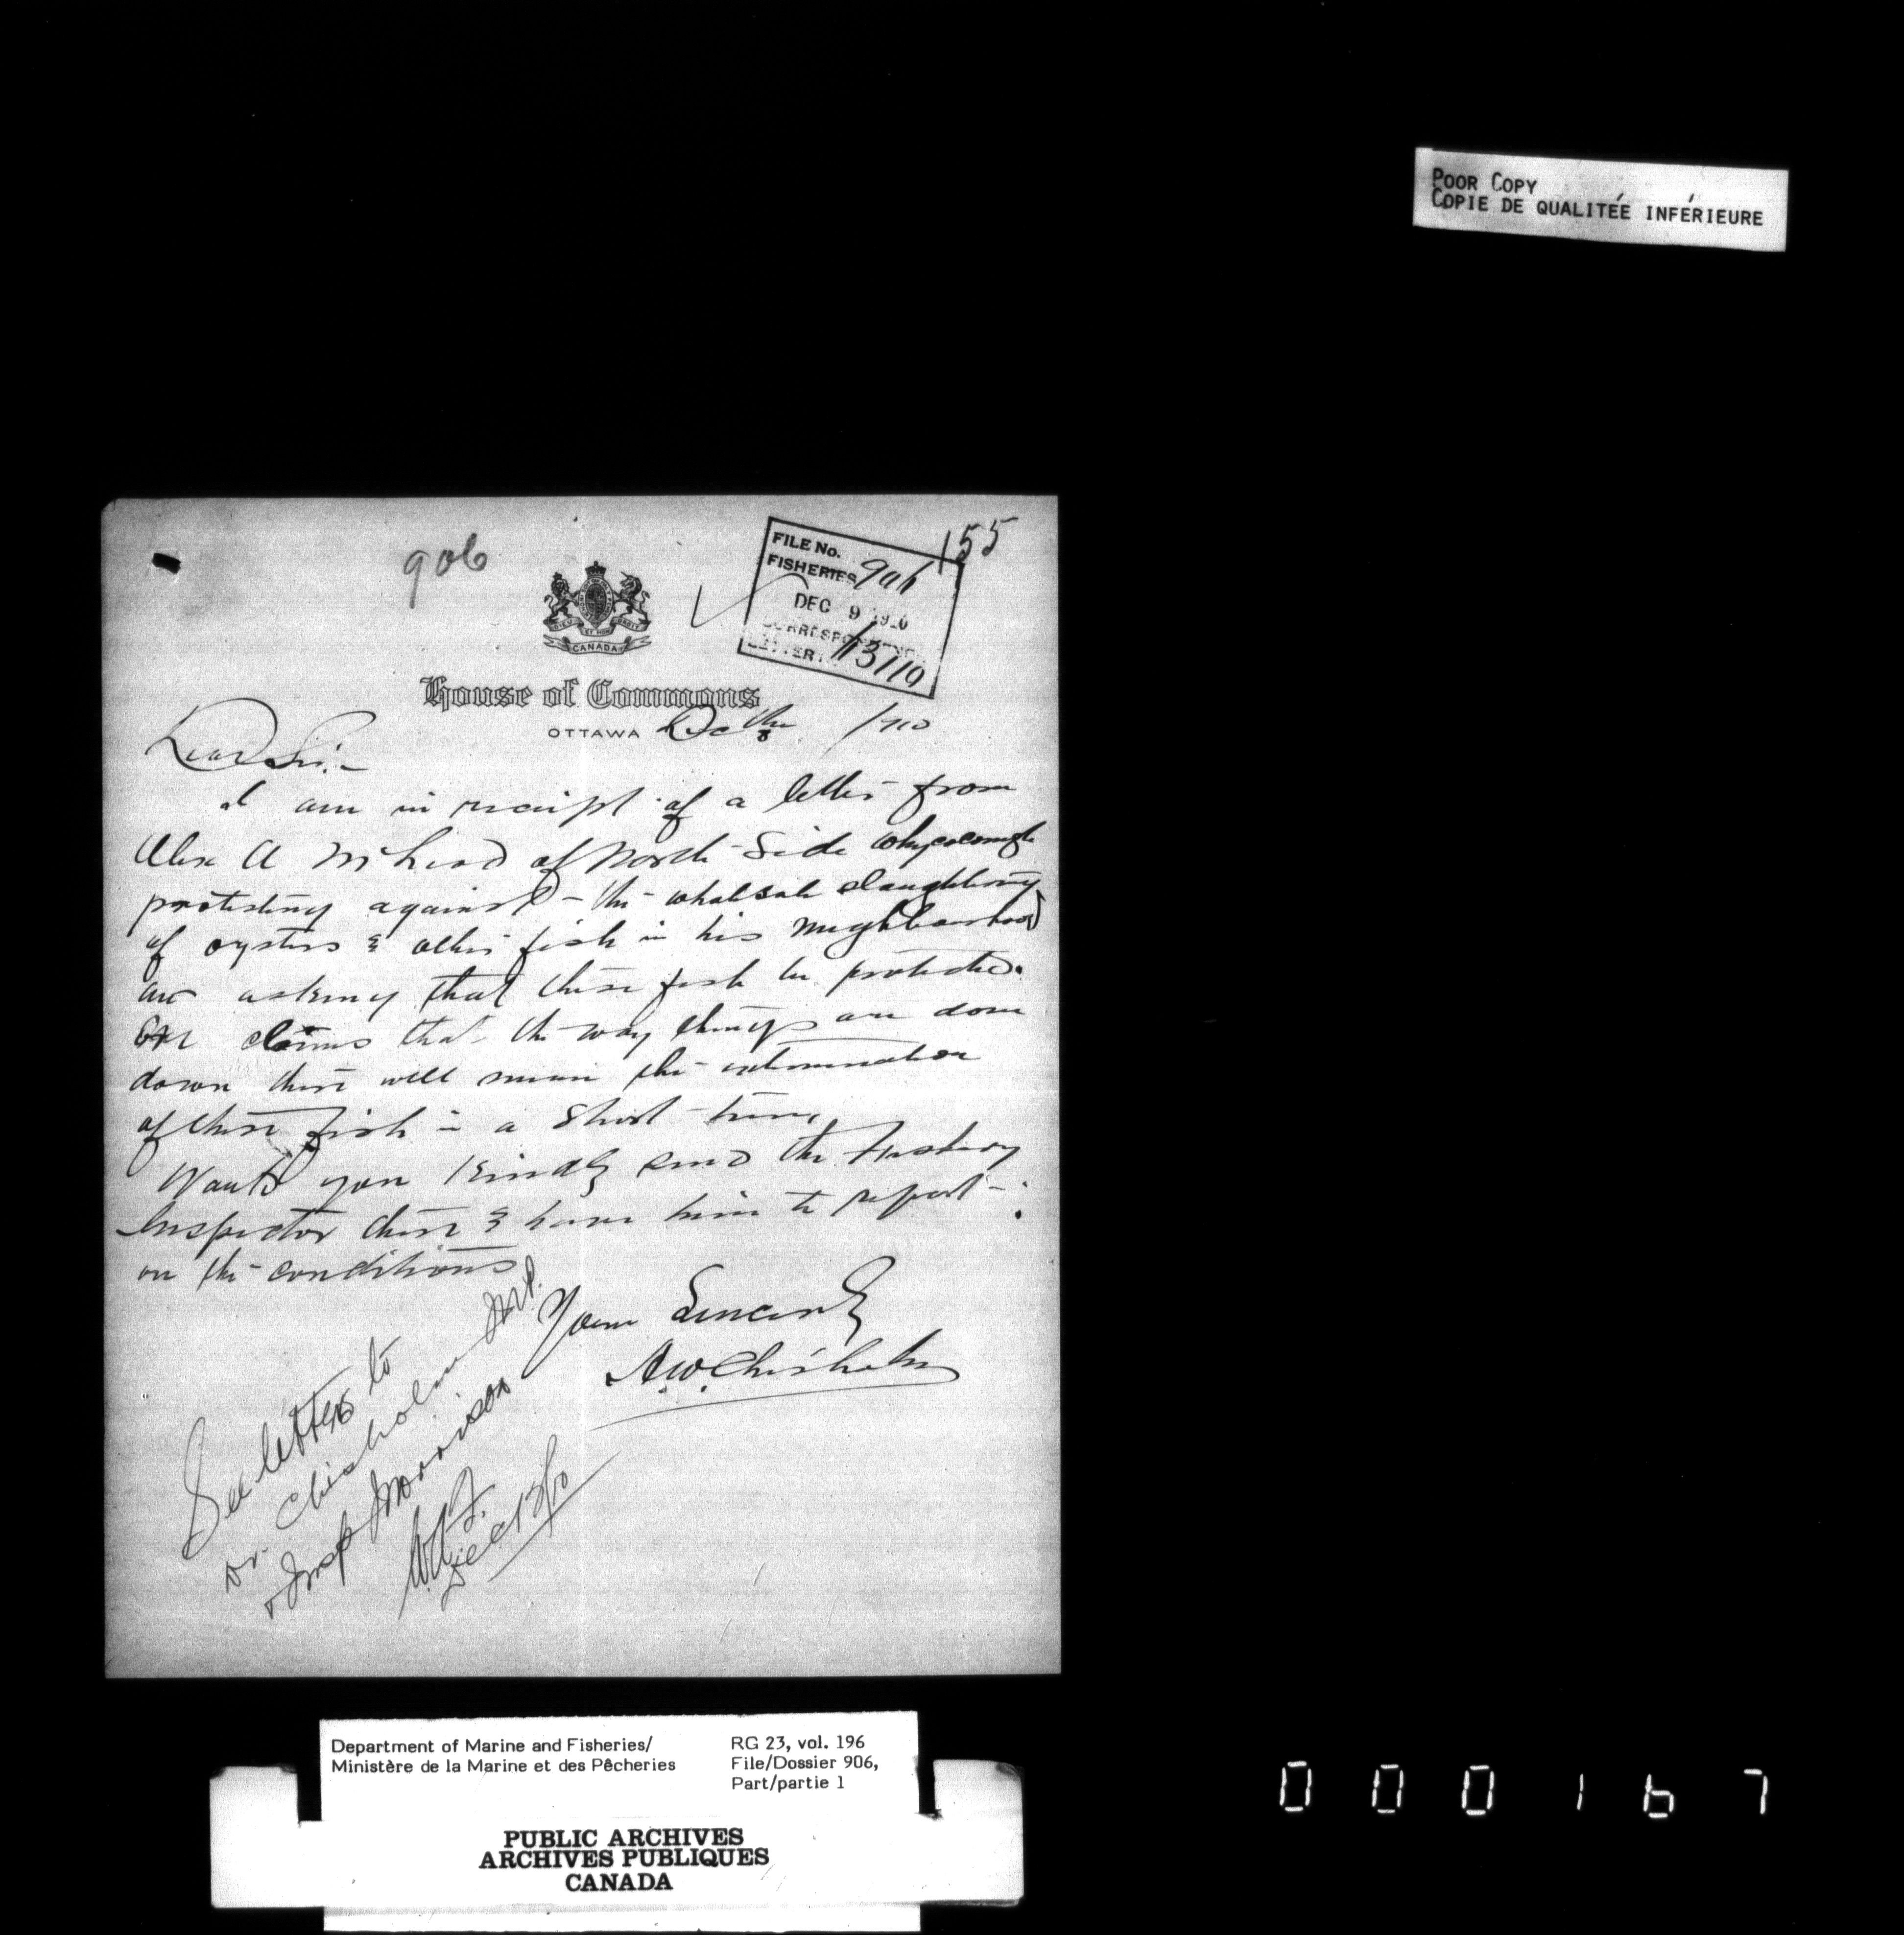 POOR COPY
COPIE DE QUALITÉE INFÉRIEURE
906
155
FILE No.
FISHERIES 906
DEC 9 1910
CORRESPONDENCE
LETTER 13/10
DIEU ET MON DROIT
CANADA
House of Commons
OTTAWA Dec 8th 1910
Dear Sir:-
I am in receipt of a letter from
Alex A McLeod of North Side Whycocomagh
protesting against the wholesale slaughtering
of oysters & other fish in his neighbourhood
and asking that these fish be protected.
He claims that the way things are done
down there will mean the extermination
of these fish in a short time,
Would you kindly send the Fishery
Inspector there & have him to report
on the conditions
Yours Sincerely
A.W. Chisholm
See letters to
Dr. Chisholm M.P.
& Insp Morrison
Dec 13/10
Department of Marine and Fisheries/
Ministère de la Marine et des Pêcheries
RG 23, vol. 196
File/Dossier 906,
Part/partie 1
PUBLIC ARCHIVES
ARCHIVES PUBLIQUES
CANADA
000167